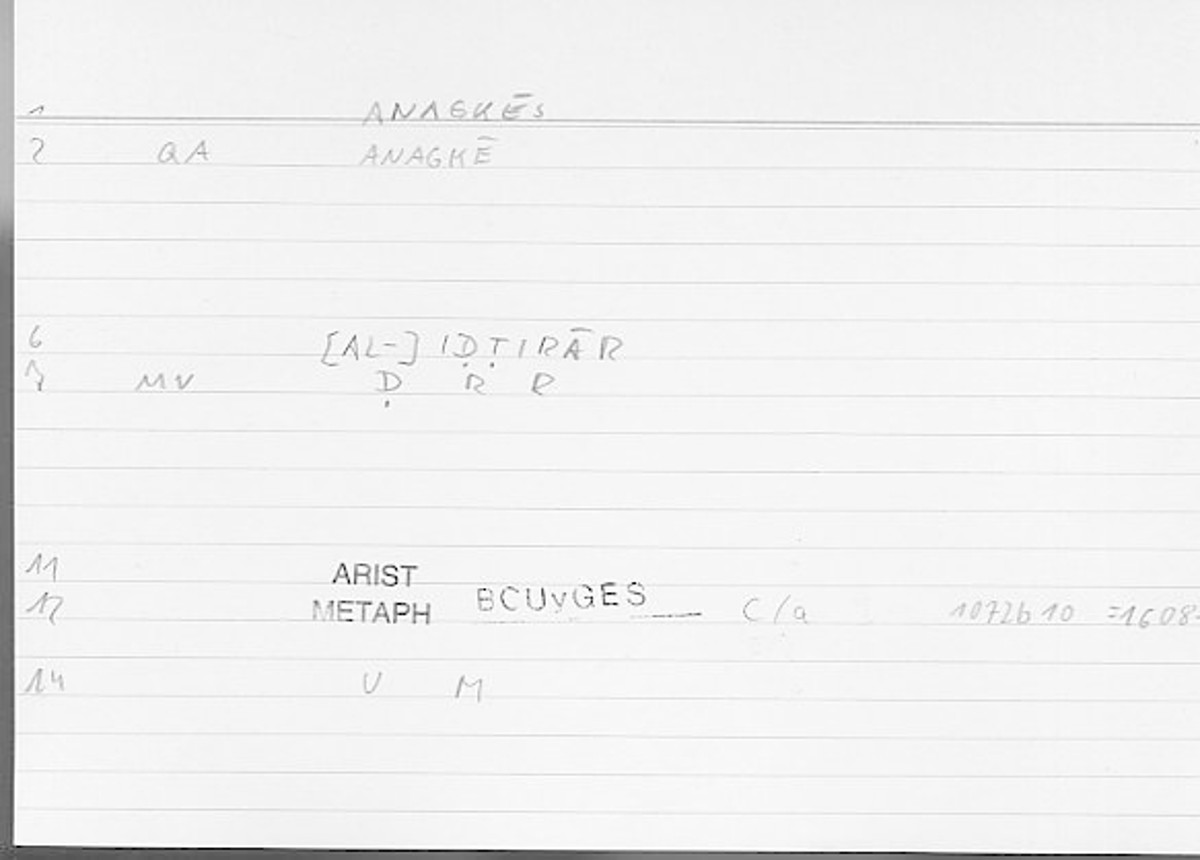 1 ANAGKĒS
2 QA ANAGKĒ
6 [AL-] IḌṬIRĀR
7 MV Ḍ R R
11 ARIST
12 METAPH BCUyGES__ C/a 1072b10 =1608-
14 U M